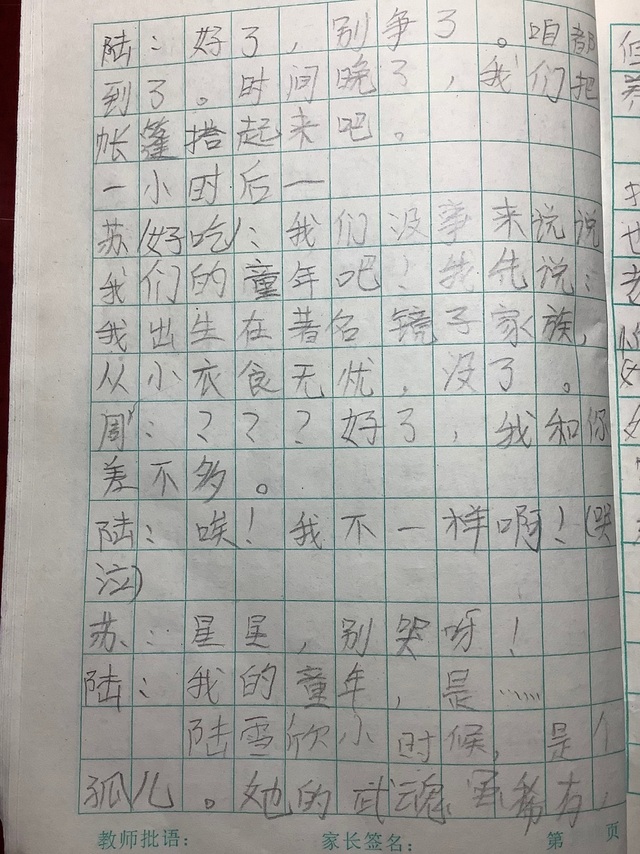 陆：好了，别争了。咱都
到了。时间晚了，我们把
帐篷搭起来吧。
一小时后一
苏(好吃)：我们没事来说说
我们的童年吧！我先说：
我出生在著名镜子家族，
从小衣食无忧，没了。
周：？？？好了，我和你
差不多。
陆：唉！我不一样啊！(哭
泣)
苏：星星，别哭呀！
陆：我的童年，是……
陆雪欣小时候，是个
孤儿。她的武魂虽稀有，
教师批语： 家长签名： 第 页